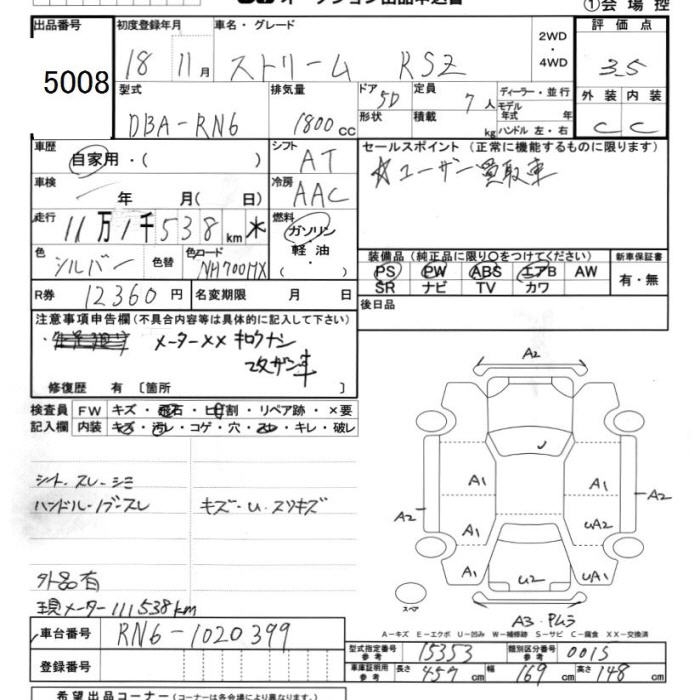 オークション出品申込書
①会場控
出品番号
5008
初度登録年月
18 11月
車名・グレード
ストリーム RSZ
2WD
・
4WD
評価点
3.5
型式
DBA-RN6
排気量
1800cc
ドア
5D
形状
定員
7人
積載
kg
ディーラー・並行
モデル
年式 年
ハンドル 左・右
外装 内装
C C
車歴
自家用・( )
シフト
AT
セールスポイント (正常に機能するものに限ります)
☆ユーザー買取車
車検
年 月( 日)
冷房
AAC
走行
11万1千538km
燃料
ガソリン
軽油
( ・ )
色
シルバー
色替
色コード
NH700MX
装備品 (純正品に限り○をつけてください)
PS PW ABS エアB AW
SR ナビ TV カワ
新車保証書
有・無
R券
12360円
名変期限 月 日
後日品
注意事項申告欄 (不具合内容等は具体的に記入して下さい)
メーター×× キロクナシ
改ザン車
修復歴 有 〔箇所 〕
検査員
記入欄
FW キズ・飛石・ヒ割・リペア跡・×要
内装 キズ・汚レ・コゲ・穴・スレ・キレ・破レ
シート・スレ・シミ
ハンドル・ノブ・スレ
キズ・U・スリキズ
外品有
現メーター111538km
A2
J
A1 A1
A2 A2
A1 UA2
A1 U2 UA1
スペア
A3・PLラ
A-キズ E-エクボ U-凹み W-補修跡 S-サビ C-腐食 XX-交換済
車台番号
RN6-1020399
登録番号
型式指定番号
参考
15353
類別区分番号
参考
0015
車庫証明用
参考
長さ 457cm 幅 169cm 高さ 148cm
希望出品コーナー (コーナーは各会場により異なります。)